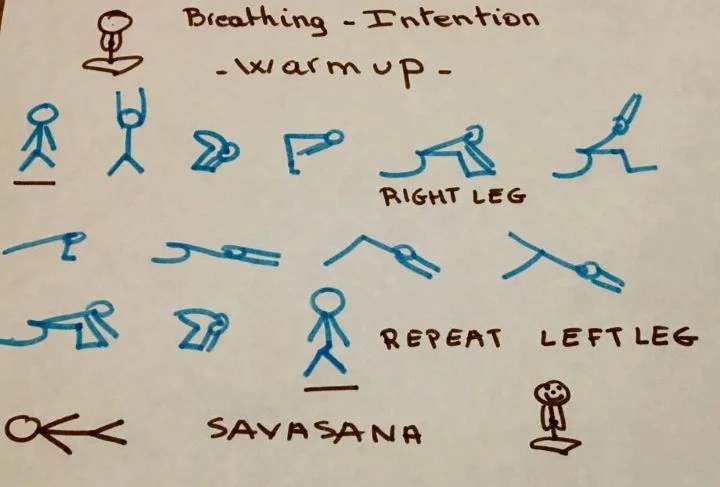 Breathing - Intention
- Warm up -
RIGHT LEG
REPEAT LEFT LEG
SAVASANA